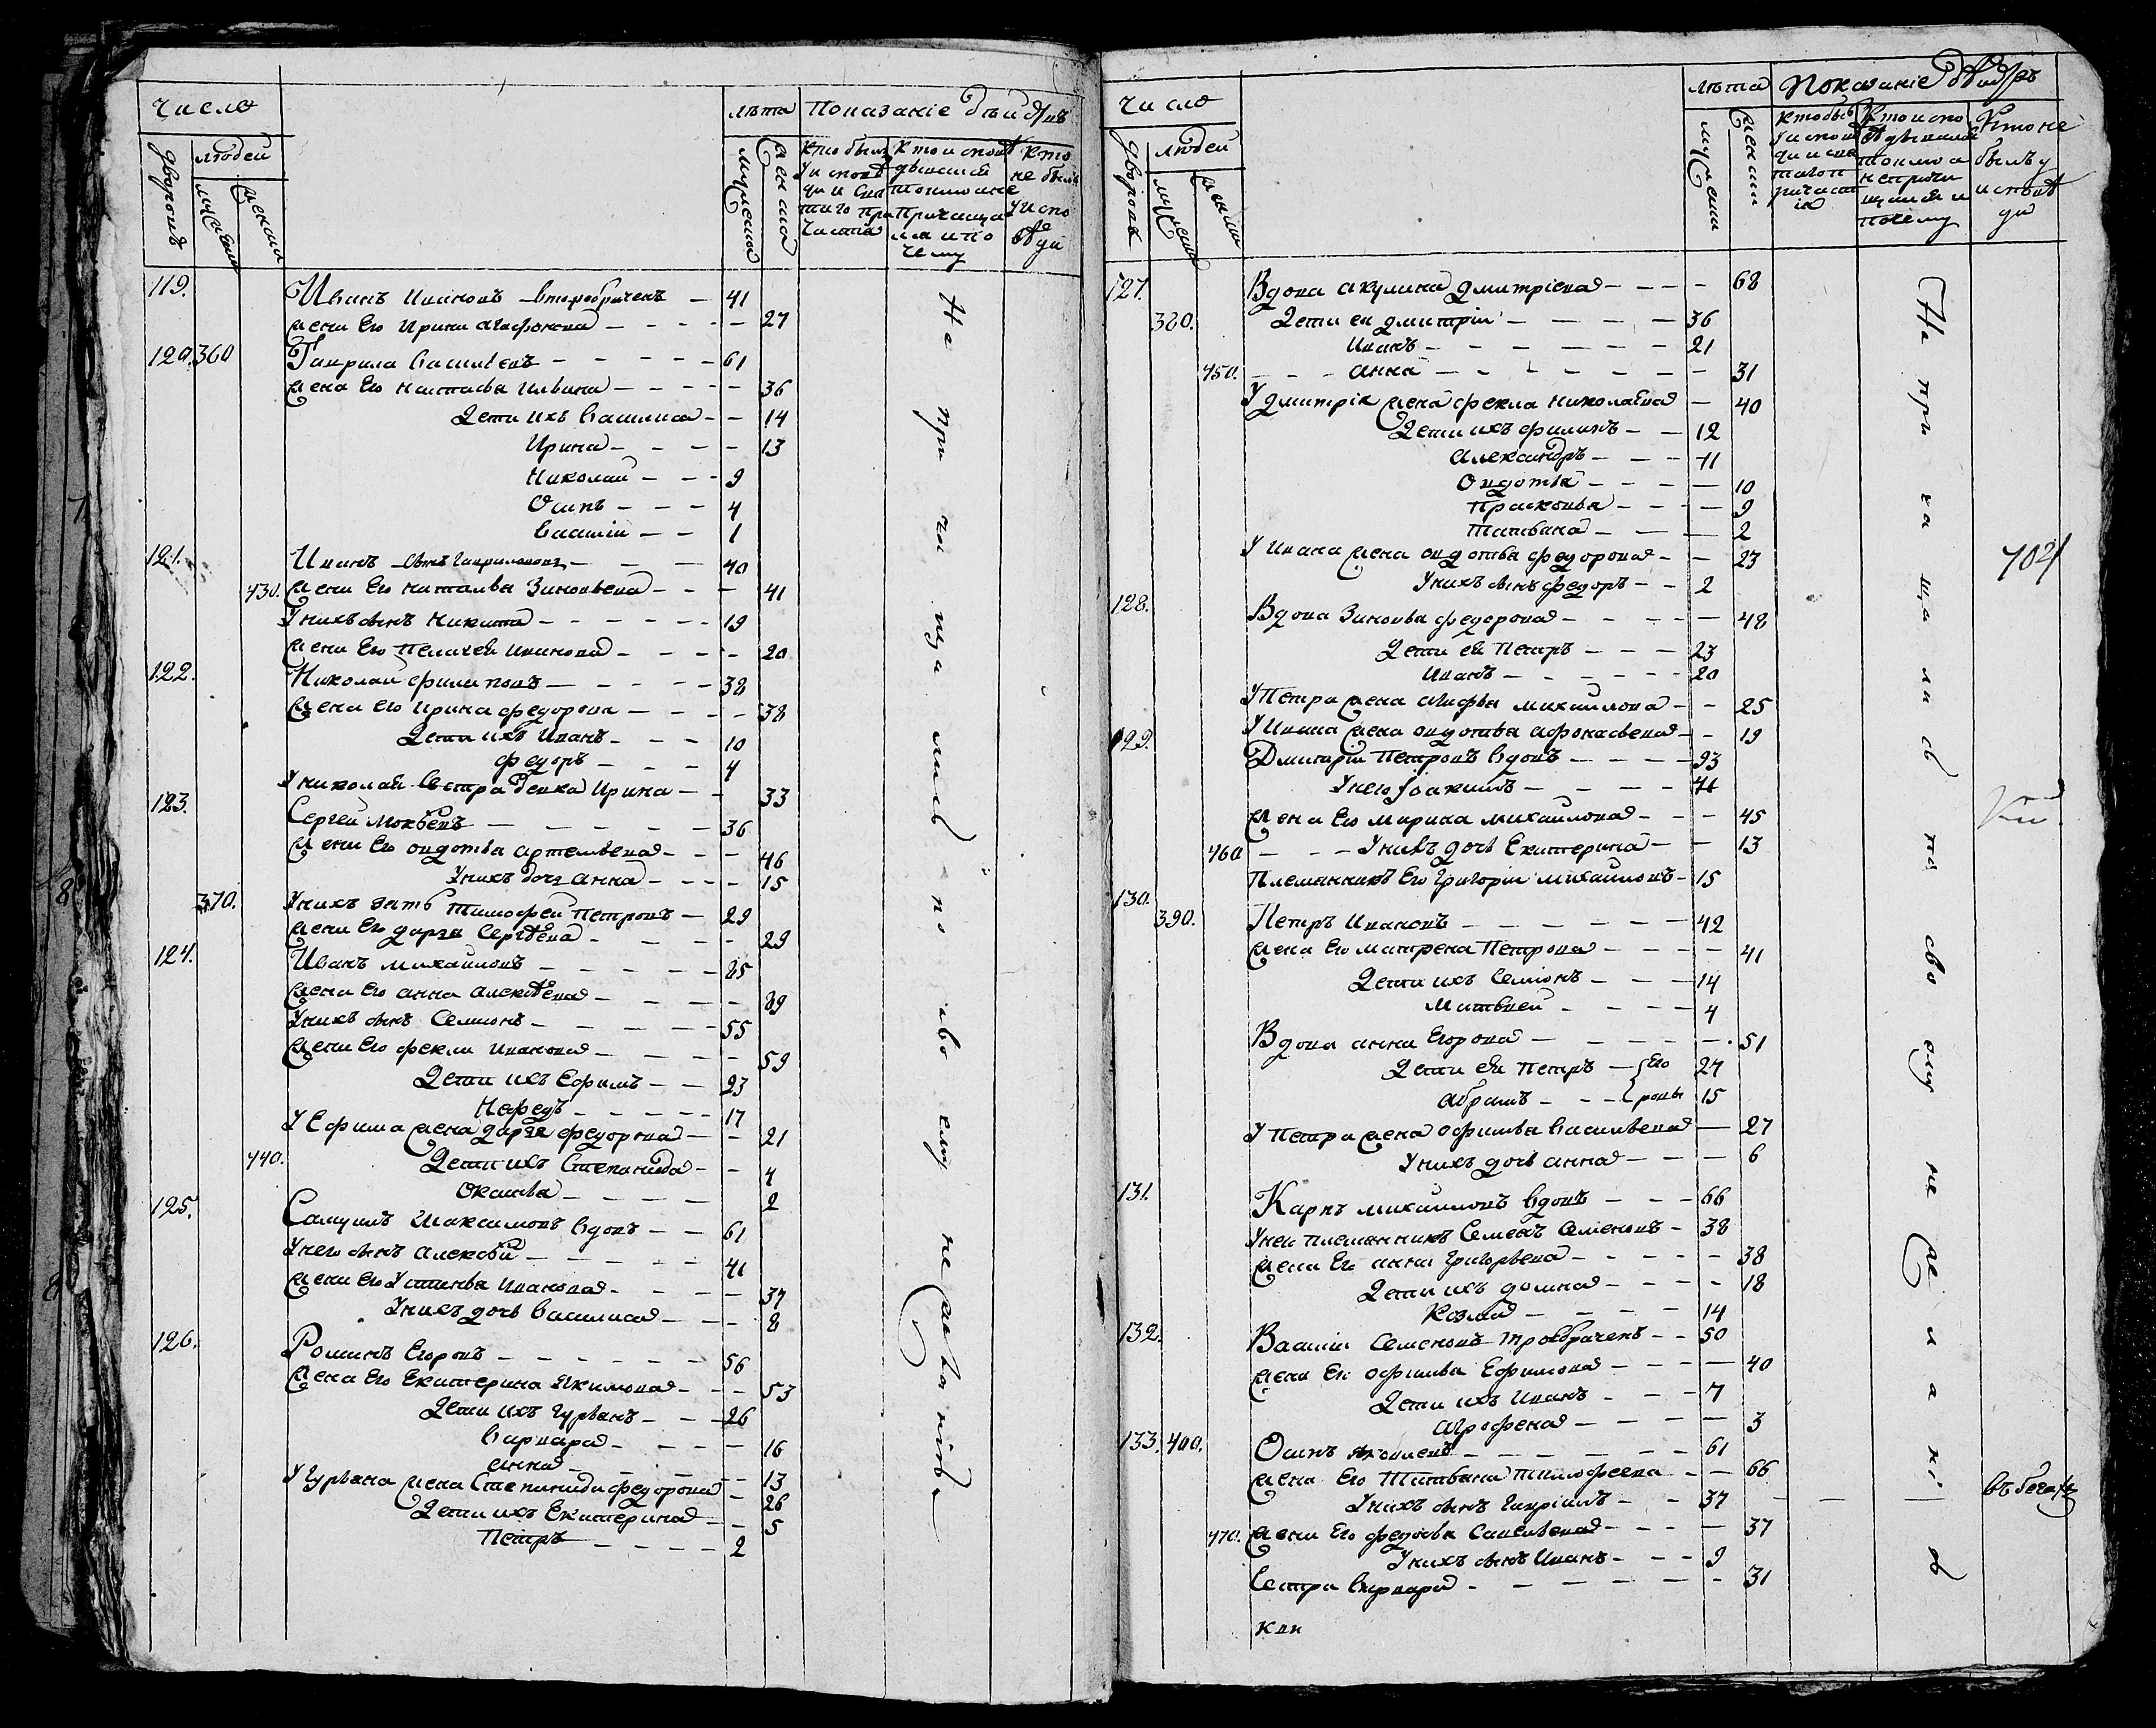 число
людей
дворовъ
мужеска
женска
лѣта
мужеска
женска
Показаніе дѣйствъ
кто былъ у исповѣди и святаго причастія
кто исповѣдывался токмо а не причащался и по чему
кто не былъ у исповѣди
119. Иванъ Ивановъ второбраченъ — 41
жена Его Ирина Агафонова — 27
120. 360 Гаврила Васильевъ — 61
жена Его Настасья Ильина — 36
Дети ихъ Василиса — 14
Ирина — 13
Николай — 9
Осипъ — 4
Василій — 1
121. Иванъ Гавриловъ — 40
430. жена Его Наталья Зиновьева — 41
У нихъ сынъ Никита — 19
жена Его Пелагея Иванова — 20
122. Николай Филиповъ — 38
жена Его Ирина Федорова — 38
Дети ихъ Иванъ — 10
Федоръ — 4
У Николая Сестра девка Ирина — 33
123. Сергей Мокѣевъ — 36
жена Его Овдотья Артемьева — 46
У нихъ дочь Анна — 15
370. У нихъ зять Тимофей Петровъ — 29
жена Его Дарья Сергѣева — 29
124. Иванъ Михайловъ — 85
жена Его Анна Алексѣева — 89
У нихъ сынъ Семионъ — 55
жена Его Фекла Иванова — 59
Дети ихъ Ефимъ — 23
Нефедъ — 17
У Ефима жена Дарья Федорова — 21
440. Дети ихъ Степанида — 4
Оксинья — 2
125. Самуилъ Максимовъ вдовъ — 61
У него сынъ Алексѣй — 41
жена Его Устинья Иванова — 37
У нихъ дочь Василиса — 8
126. Романъ Егоровъ — 56
жена Его Екатерина Якимова — 53
Дети ихъ Гурьянъ — 26
Варвара — 16
Анна — 13
У Гурьяна жена Степанида Федорова — 26
Дети ихъ Екатерина — 5
Петръ — 2
Не причищались по своему нежеланію
число
людей
дворовъ
мужеска
женска
лѣта
мужеска
женска
Показаніе дѣйствъ
кто былъ у исповѣди и святаго причастія
кто исповѣдывался токмо а не причащался и по чему
кто не былъ у исповѣди
127. Вдова Акулина Дмитріева — 68
380. Дети ея Дмитрій — 36
Иванъ — 21
450. Анна — 31
У Дмитрія жена Фекла Николаева — 40
Дети ихъ Филипъ — 12
Александръ — 11
Овдотья — 10
Прасковья — 9
Татьяна — 2
У Ивана жена Овдотья Федорова — 23
У нихъ сынъ Федоръ — 2
128. Вдова Зиновья Федорова — 48
Дети ея Петръ — 23
Иванъ — 20
У Петра жена Агафья Михайлова — 25
У Ивана жена Овдотья Афонасьева — 19
129. Дмитрій Петровъ вдовъ — 93
У него Іоакимъ — 41
жена Его Марина Михайлова — 45
460 У нихъ дочь Екатерина — 13
Племянникъ Его Григорій Михайловъ — 15
130. 390. Петръ Ивановъ — 42
жена Его Матрена Петрова — 41
Дети ихъ Семіонъ — 14
Матвеей — 4
Вдова Анна Егорова — 51
Дети ея Петръ — Его 24
Абрамъ — ровы 15
У Петра жена Офимья Васильева — 27
У нихъ дочь Анна — 6
131. Карпъ Михайловъ вдовъ — 66
У нею племянникъ Семенъ Семеновъ — 38
жена Его Анна Григорьева — 38
Дети ихъ Домна — 18
Козма — 14
132. Василій Семеновъ троебраченъ — 50
жена Его Офимья Ефимова — 40
Дети ихъ Иванъ — 7
Агрофена — 3
133. 400. Осипъ Яковлевъ — 61
жена Его Татьяна Тимофеева — 66
У нихъ сынъ Гавріилъ — 37 — въ бегахъ
470. жена Его Федосья Савельева — 37
У нихъ сынъ Иванъ — 9
Сестра Варвара — 31
Не причащались по своему нежеланію
702